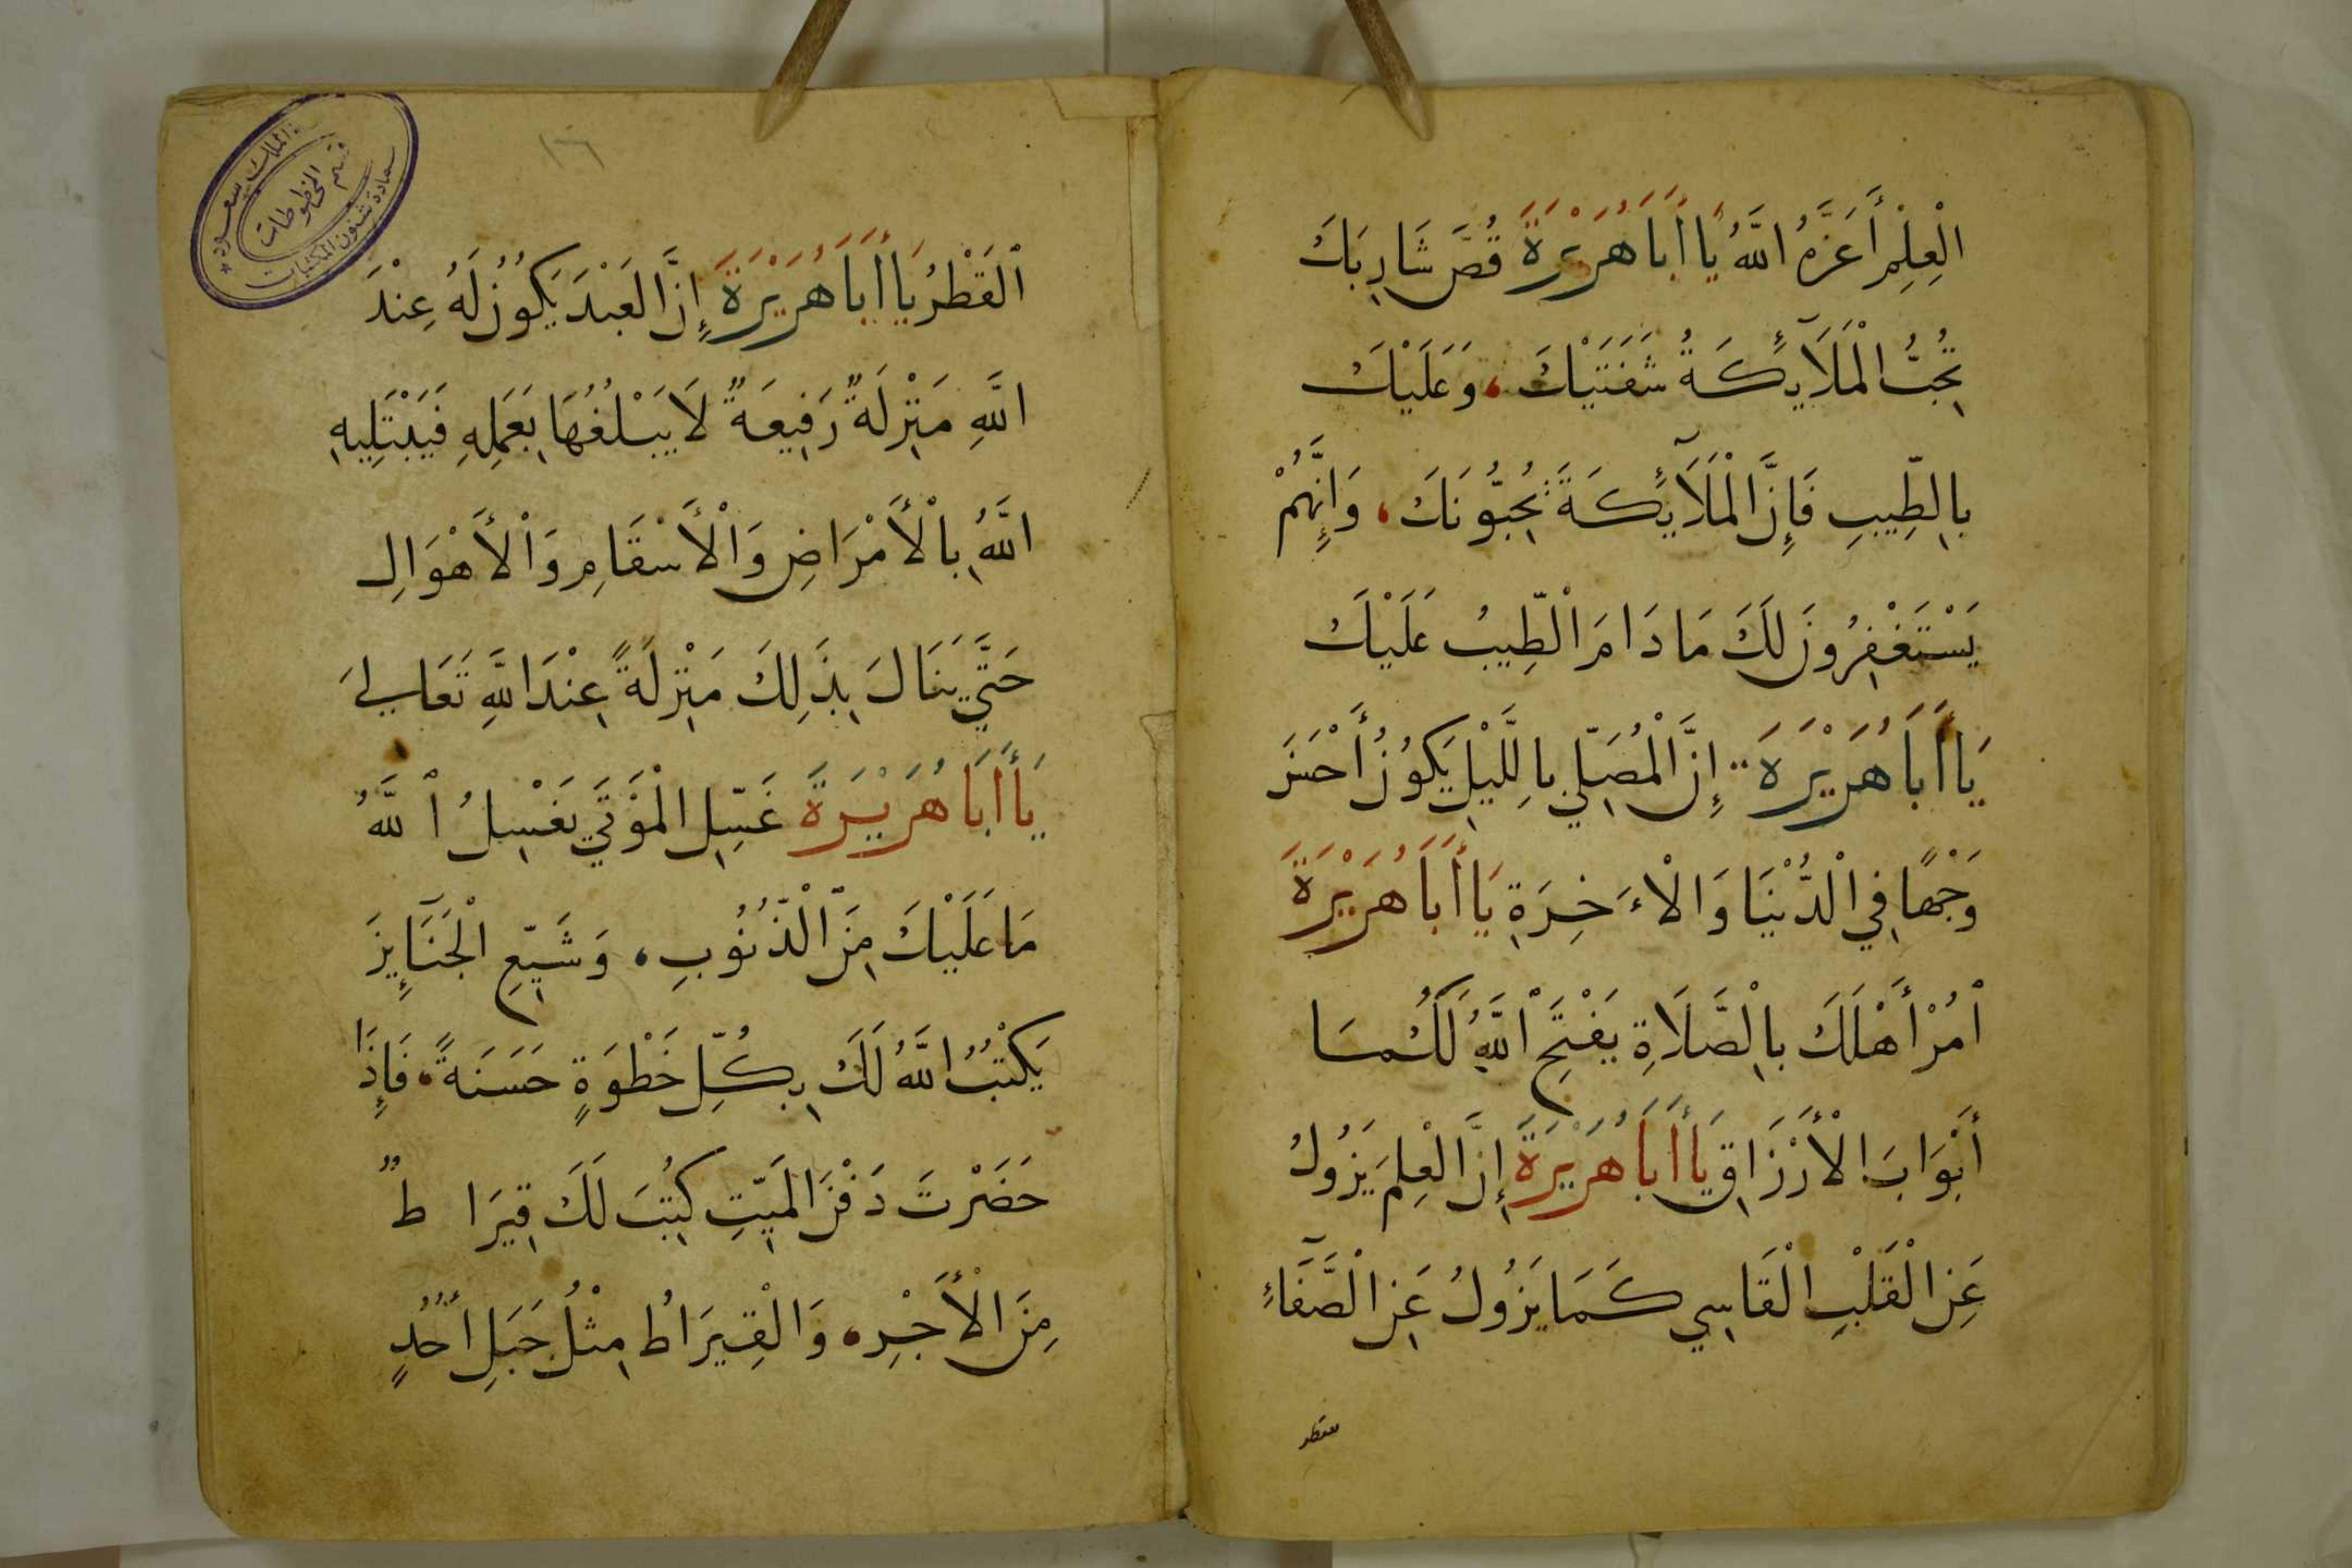 الْعِلْمِ أَعَزَّهُ اللَّهُ يَا أَبَا هُرَيْرَةَ قُصَّ شَارِبَكَ
تُحِبُّ الْمَلَآئِكَةُ شَفَتَيْكَ، وَعَلَيْكَ
بِالطِّيبِ فَإِنَّ الْمَلَآئِكَةَ يُحِبُّونَكَ، وَإِنَّهُمْ
يَسْتَغْفِرُونَ لَكَ مَا دَامَ الطِّيبُ عَلَيْكَ
يَا أَبَا هُرَيْرَةَ إِنَّ الْمُصَلِّي بِاللَّيْلِ يَكُونُ أَحْسَنَ
وَجْهًا فِي الْدُّنْيَا وَالْأَخِرَةِ يَا أَبَا هُرَيْرَةَ
اُمُرْ أَهْلَكَ بِالْصَّلَاةِ يَفْتَحِ اللَّهُ لَكُمَا
أَبْوَابَ الْأَرْزَاقِ يَا أَبَا هُرَيْرَةَ إِنَّ الْعِلْمَ يَزُولُ
عَنِ الْقَلْبِ الْقَاسِي كَمَا يَزُولُ عَنِ الْصَّفَآءِ
القَطْرُ يَا أَبَا هُرَيْرَةَ إِنَّ العَبْدَ يَكُونُ لَهُ عِنْدَ
اللَّهِ مَنْزِلَةٌ رَفِيعَةٌ لَا يَبْلُغُهَا بِعَمَلِهِ فَيَبْتَلِيهِ
اللَّهُ بِالْأَمْرَاضِ وَالْأَسْقَامِ وَالْأَهْوَالِ
حَتَّي يَنَالَ بِذَلِكَ مَنْزِلَةً عِنْدَ اللَّهِ تَعَالَي
يَا أَبَا هُرَيْرَةَ غَسِّلِ الْمَوْتَي يَغْسِلُ اللَّهُ
مَا عَلَيْكَ مِنَ الْذُّنُوبِ، وَشَيِّعِ الْجَنَآئِزَ
يَكْتُبُ اللَّهُ لَكَ بِكُلِّ خَطْوَةٍ حَسَنَةً، فَإِذَا
حَضَرْتَ دَفْنَ الْمَيِّتِ كُتِبَ لَكَ قِيرَاطٌ
مِنَ الْأَجْرِ، وَالْقِيرَاطُ مِثْلُ جَبَلِ أُحُدٍ
١٦
الملك سعود
قسم المخطوطات
عمادة شئون المكتبات